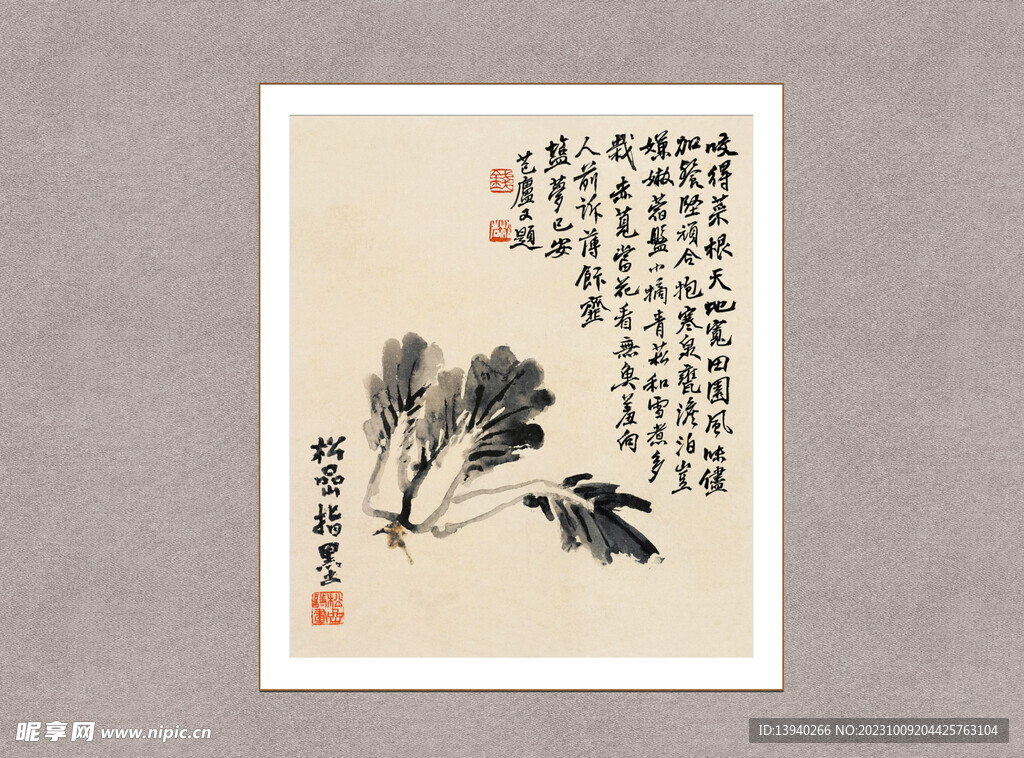 咬得菜根天地寬田園風味儘
加餐堅頑合抱寒泉甕澹泊豈
嫌嫩蓉盤小摘青菘和雪煮多
栽赤莧當花看無魚羞向
人前訴薄飯虀
鹽夢已安
芑廬又題
松嵒指墨
昵享网 www.nipic.cn
ID:13940266 NO:20231009204425763104